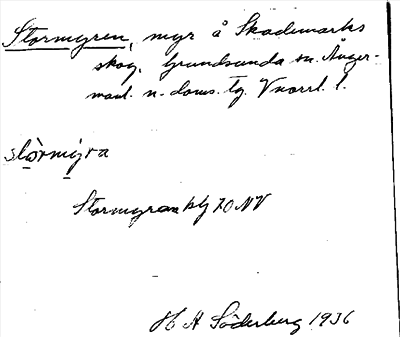 Stormyren, myr å Skademarks
skog, Grundsunda sn. Ånger-
manl. n. doms. tg. Vnorrl. l.
stòrmýra
Stormyran blg 70 NV
H A Söderberg 1936